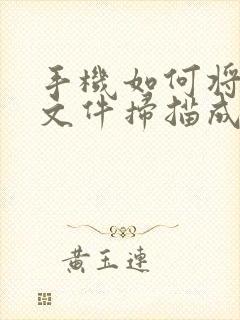 手機如何將
文件掃描成
黃玉連